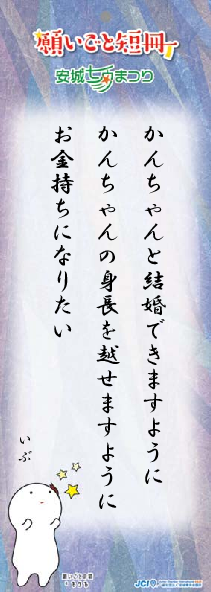 願いごと短冊
安城七夕まつり
かんちゃんと結婚できますように
かんちゃんの身長を越せますように
お金持ちになりたい
いぶ
JCI